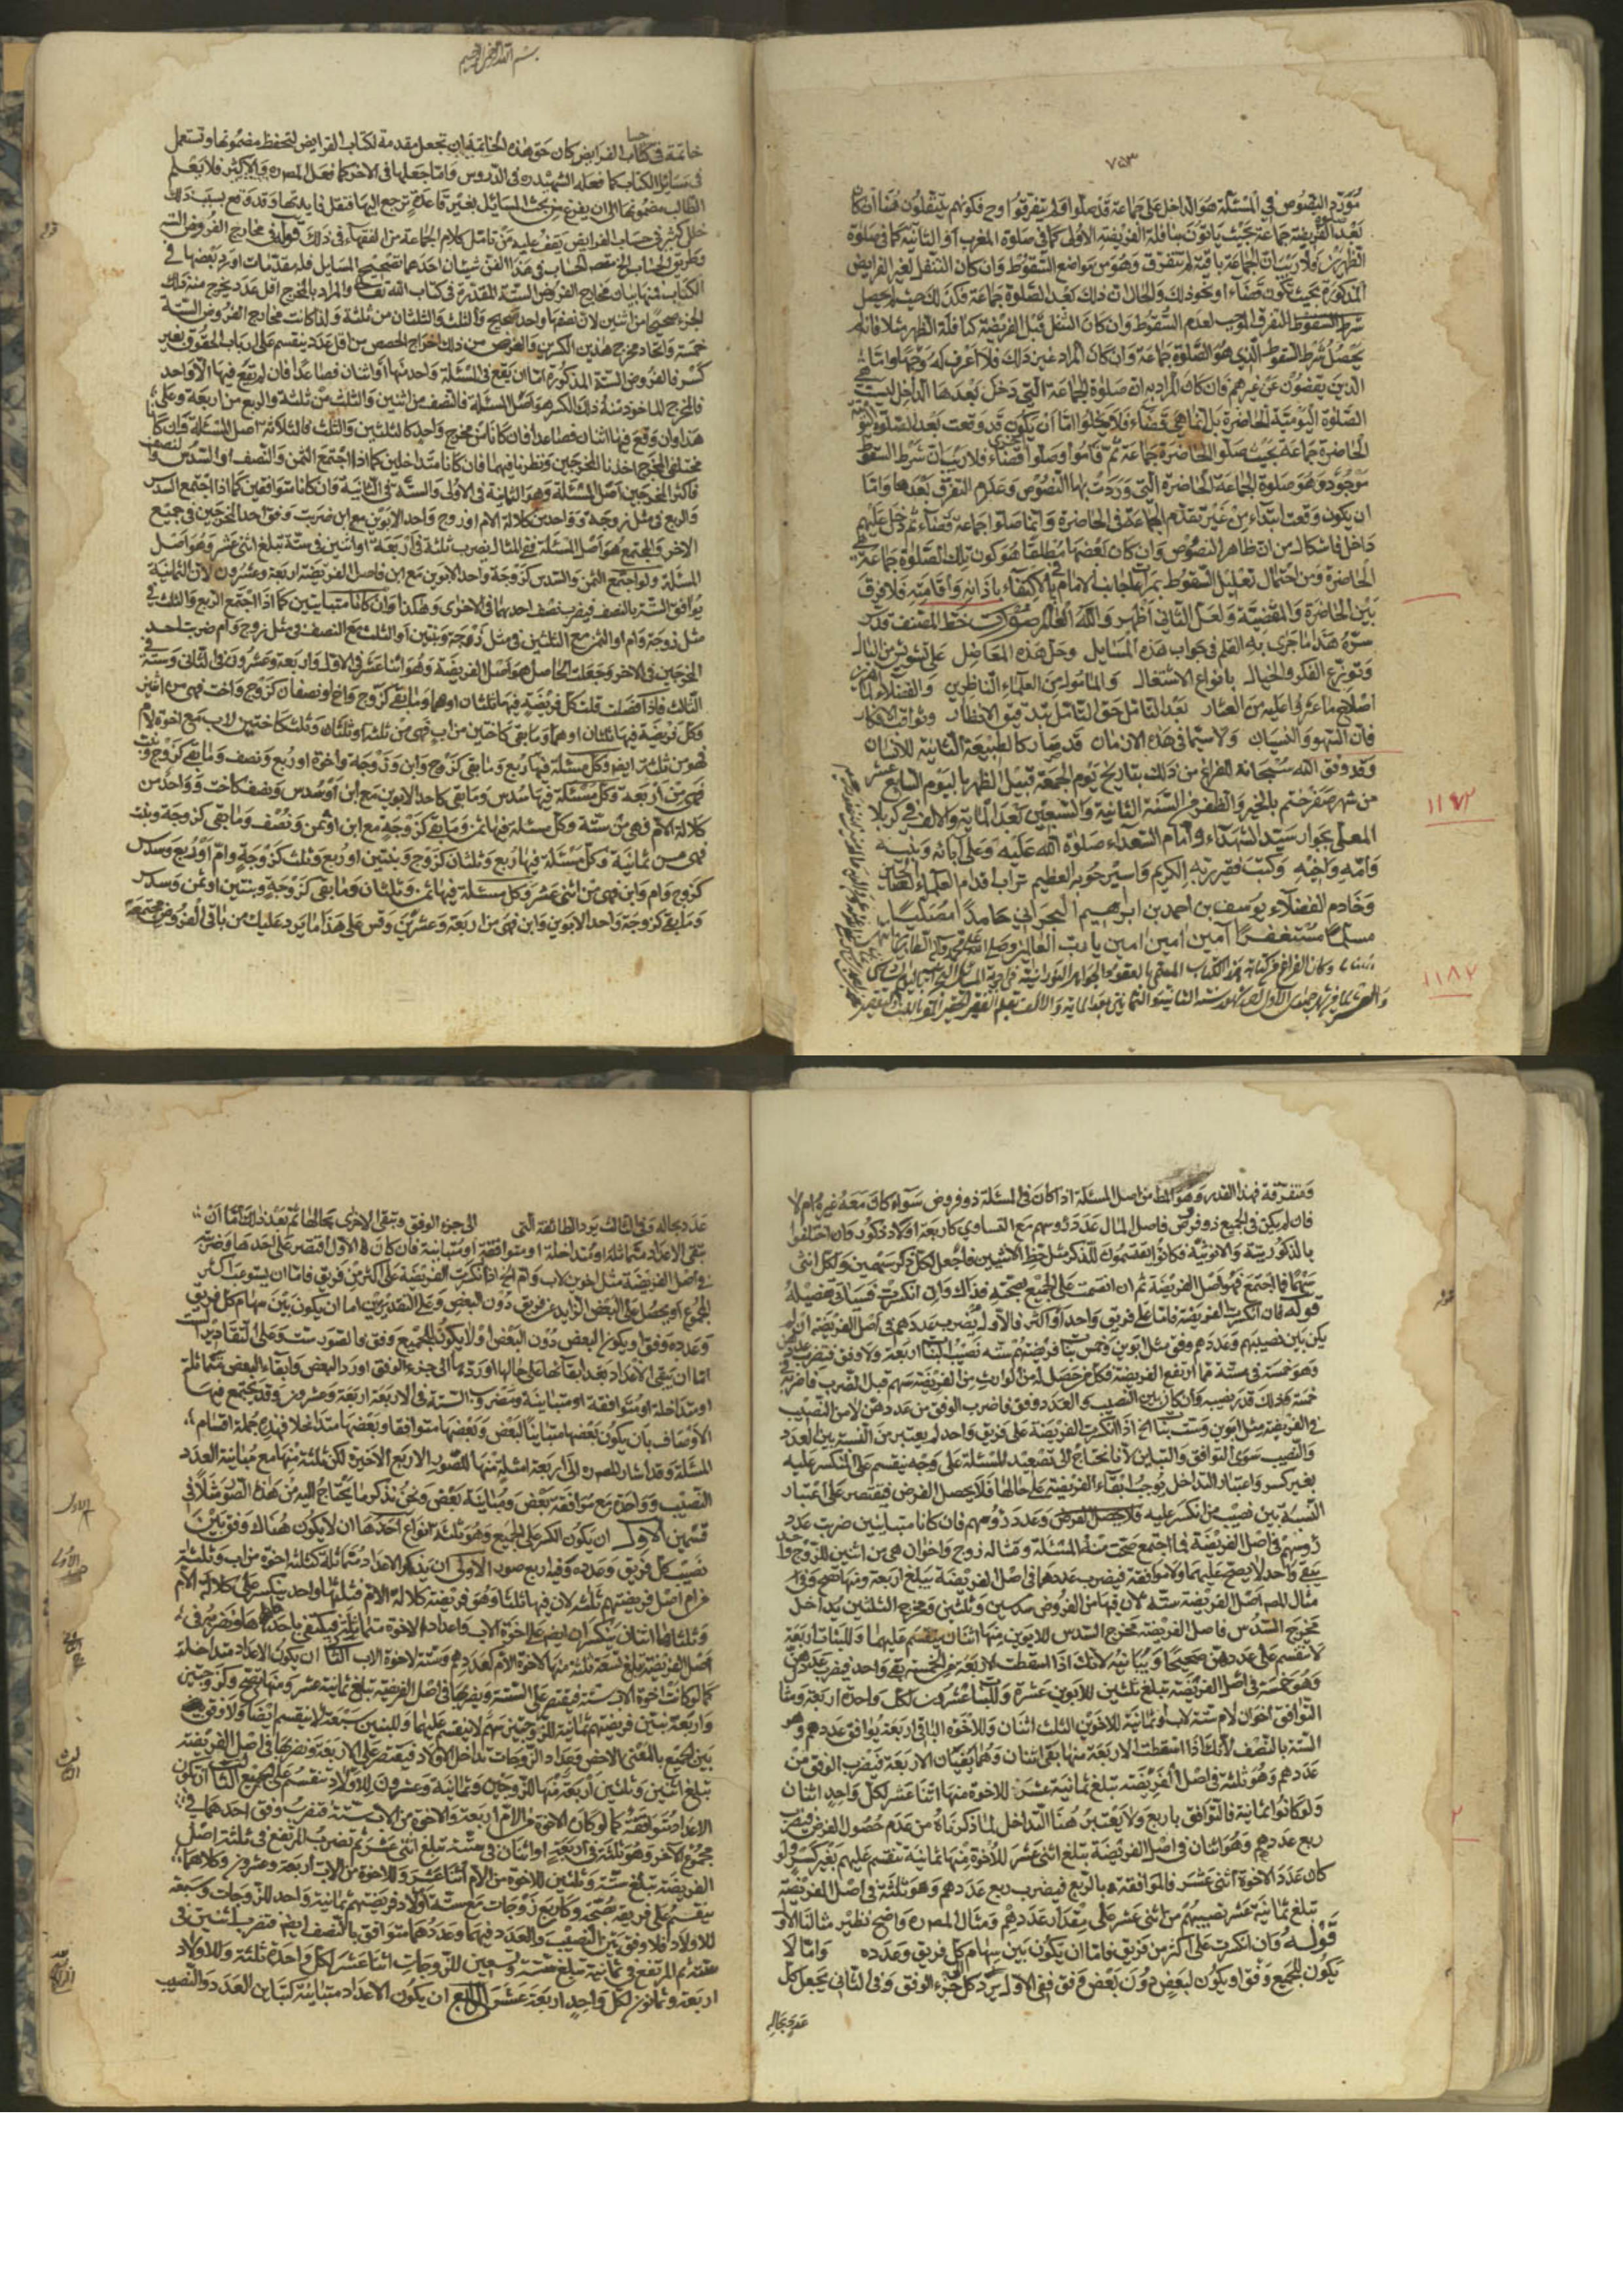 ٧٥٣
مورد النصوص في المسئلة هو الداخل على جماعة قد صلوا ولم يتفرقوا وح فكونهم يتنفلون فيها ان كان
بعد الفريضة جماعة بحيث ياتون بنافلة الفريضة الاولى كما في صلوة المغرب او الثانية كما في صلوة
الظهرين فلا ريب ان الجماعة باقية لم تتفرق وهو من مواضع السقوط وان كان التنفل لغير الفرايض
المذكورة بحيث تكون قضاء او نحو ذلك والحال ان ذلك بعد الصلوة جماعة فكذلك حيث لم يحصل
شرط السقوط التفرق الموجب لعدم السقوط وان كان التنفل قبل الفريضة كنافلة الظهر مثلا فانه لم
يحصل شرط السقوط الذي هو الصلوة جماعة وان كان المراد غير ذلك فلا اعرف له وجها واما
الذين يقضون عن غيرهم فان كان المراد به ان صلوة الجماعة التي دخل بعدها الداخل ليست هي
الصلوة اليومية الحاضرة بل انما هي قضاء فلا يخلو اما ان يكون قد وقعت بعد الصلوة
الحاضرة جماعة بحيث صلوا الحاضرة جماعة ثم قاموا وصلوا قضاء فلا ريب ان شرط السقوط
موجود وهو صلوة الجماعة الحاضرة التي وردت بها النصوص وعدم التفرق بعدها واما
ان يكون وقعت ابتداء من غير تقدم الجماعة في الحاضرة وانما صلوا جماعة قضاء ثم دخل عليهم
داخل فاشكال من ان ظاهر النصوص وان كان بعضها مطلقا هو كون تلك الصلوة جماعة هي
الحاضرة ومن احتمال تعليل السقوط بمراعاة جانب الامام في الاكتفاء باذانه واقامته فلا فرق
بين الحاضرة والمقضية ولعل الثاني اظهر والله العالم صورة خط المصنف قدس
سره هذا ما جرى به القلم في جواب هذه المسايل وحل هذه المعاضل على تشويش من البال
وتوزع الفكر والخيال بانواع الاشتغال والمامول من العلماء الناظرين والفضلاء الماهرين
اصلاح ما عثروا عليه من العثار بعد التامل حق التامل بتدقيق الانظار وثواقب الافكار
فان السهو والنسيان ولا سيما في هذه الازمان قد صار كالطبيعة الثانية للانسان
وقد وفق الله سبحانه الفراغ من ذلك بتاريخ يوم الجمعة قبيل الظهر باليوم السابع عشر
من شهر صفر ختم بالخير والظفر من السنة الثانية والسبعين بعد المائة والالف في كربلا
١١٧٢
المعلى بجوار سيد الشهداء وامام السعداء صلوة الله عليه وعلى آبائه وبنيه
وامه واخيه وكتب فقير ربه الكريم واسير جوده العظيم تراب اقدام العلماء
وخادم الفضلاء يوسف بن احمد بن ابراهيم البحراني حامدا مصليا
مسلما مستغفرا آمين آمين آمين يا رب العالمين وصلى الله على محمد وآله الطاهرين
وكان الفراغ من كتابة هذا الكتاب
١١٨٢
شهر جمادى الاول سنة الثانية والثمانين بعد الماية والالف بقلم الفقير الحقير
بسم الله الرحمن الرحيم
خاتمة في حساب الفرايض كان حق هذه الخاتمة ان تجعل مقدمة لكتاب الفرايض لتحفظ مضمونها وتستعمل
في مسايل الكتاب كما فعله الشهيد ره في الدروس وانما جعلها في الاخر كما فعل المصره والاكثر فلا يعلم
الطالب مضمونها الى ان يفرغ من بحث المسايل بغير قاعدة ترجع اليها فتقل فايدتها وقد وقع بسبب ذلك
خلل كثير في حساب الفرايض يقف عليه من تامل كلام الجماعة من الفقهاء في ذلك قوله في مخارج الفروض الستة
وطريق الحساب الخ مقصد الحساب في هذا الفن شيئان احدهما تصحيح المسايل فله مقدمات اورد بعضها في
الكتاب فمنها بيان مخارج الفروض الستة المقدرة في كتاب الله تعالى والمراد بالمخرج اقل عدد يخرج منه ذلك
الجزء صحيحا من اثنين لان نصفها واحد صحيح والثلث والثلثان من ثلثة ولذا كانت مخارج الفروض الستة
خمسة واتحاد مخرج هذين الكسرين والغرض من ذلك اخراج الحصص من اقل عدد ينقسم على ارباب الحقوق بغير
كسر فالفروض الستة المذكورة اما ان يقع في المسئلة واحد منها او اثنان فصاعدا فان لم يقع فيها الا واحد
فالمخرج الماخوذ منه ذلك الكسر هو اصل المسئلة فالنصف من اثنين والثلث من ثلثة والربع من اربعة وعلى
هذا وان وقع فيها اثنان فصاعدا فان كانا من مخرج واحد كالثلثين والثلث فالثلاثة اصل المسئلة وان كانا
مختلفي المخرج اخذنا المخرجين ونظرنا فيهما فان كانا متداخلين كما اذا اجتمع الثمن والنصف او السدس والنصف
فاكثر المخرجين اصل المسئلة وهو الثمانية في الاولى والستة في الثانية وان كانا متوافقين كما اذا اجتمع السدس
والربع في مثل زوجة وواحد من كلالة الام او زوج واحد الابوين مع ابن ضربت وفق احد المخرجين في جميع
الاخر والمجتمع هو اصل المسئلة ففي المثال يضرب ثلثة في اربعة او اثنين في ستة تبلغ اثنى عشر وهو اصل
المسئلة ولو اجتمع الثمن والسدس كزوجة واحد الابوين مع ابن فاصل الفريضة اربعة وعشرون لان الثمانية
يوافق الستة بالنصف فيضرب نصف احدهما في الاخرى وهكذا وان كانا متباينين كما اذا اجتمع الربع والثلث في
مثل زوجة وام او الثمن مع الثلثين في مثل زوجة وبنتين او الثلث مع النصف في مثل زوج وام ضربت احد
المخرجين في الاخر وجعلت الحاصل هو اصل الفريضة وهو اثنا عشر في الاول واربعة وعشرون في الثاني وستة في
الثالث فاذا فصلت قلت كل فريضة فيها نصفان او هما وما بقي كزوج واخ او نصفان كزوج واخت فهي من اثنين
وكل فريضة فيها ثلثان او هما وما بقي كاختين من اب فهي من ثلثة او ثلثان وثلث كاختين لاب مع اخوة لام
فهو من ثلثة ايضا وكل مسئلة فيها ربع وما بقي كزوج وابن وزوجة واخوة او ربع ونصف وما بقي كزوج وبنت
فهي من اربعة وكل مسئلة فيها سدس وما بقي كاحد الابوين مع ابن او سدس ونصف كاخت وواحد من
كلالة الام فهي من ستة وكل مسئلة فيها ثمن وما بقي كزوجة مع ابن او ثمن ونصف وما بقي كزوجة وبنت
فهي من ثمانية وكل مسئلة فيها ربع وثلثان كزوج وبنتين او ربع وثلث كزوجة وام او ربع وسدس
كزوج وام وابن فهي من اثنى عشر وكل مسئلة فيها ثمن وثلثان وما بقي كزوجة وبنتين او ثمن وسدس
وما بقي كزوجة واحد الابوين وابن فهي من اربعة وعشرين وقس على هذا ما يرد عليك من باقي الفروض مجتمعة
ومتفرقة فهذا القدر وهو من اصل المسئلة اذا كان في المسئلة ذو فروض سواء كان معه غيره ام لا
فان لم يكن في الجميع ذو فرض فاصل المال عدد رؤسهم مع التساوي كاربعة اولاد ذكور وان اختلفوا
بالذكورية والانوثية فكانوا يقتسمون للذكر مثل حظ الانثيين فاجعل لكل ذكر سهمين ولكل انثى
سهما فما اجتمع فهو اصل الفريضة ثم ان انقسمت على الجميع صحيحة فذاك وان انكسرت فسياتي تفصيله
قوله فان انكسرت الفريضة فاما على فريق واحد او اكثر فالاول يضرب عددهم في اصل الفريضة ان لم
يكن بين نصيبهم وعددهم وفق مثل ابوين وخمس بنات فريضتهم ستة نصيب البنات اربعة ولا وفق فتضرب عددهن
وهو خمسة في ستة فما ارتفع الفريضة فكل من حصل له من الوارث من الفريضة سهم قبل الضرب فاضربه في
خمسة فذلك قدر نصيبه وان كان بين النصيب والعدد وفق فاضرب الوفق من عددهن لا من النصيب
في الفريضة مثل ابوين وست بنات الخ اذا انكسرت الفريضة على فريق واحد لم يعتبر من النسب بين العدد
والنصيب سوى التوافق والتباين لانا نحتاج الى تصعيد المسئلة على وجه ينقسم على المنكسر عليه
بغير كسر واعتبار التداخل يوجب ابقاء الفريضة على حالها فلا يحصل الغرض فيقتصر على اعتبار
النسبة بين نصيب من انكسر عليه وعدد رؤسهم فان كانا متباينين ضربت عدد
رؤسهم في اصل الفريضة فما اجتمع صحت منه المسئلة ومثاله زوج واخوان هي من اثنين للزوج واحد
يبقى واحد لا يصح عليهما ولا موافقة فيضرب عددهما في اصل الفريضة يبلغ اربعة ومنها تصح وفي
مثال المص اصل الفريضة ستة لان فيها من الفروض سدسين وثلثين ومخرج الثلثين يداخل
مخرج السدس فاصل الفريضة مخرج السدس للابوين منها اثنان ينقسم عليهما وللبنات اربعة
لا تنقسم على عددهن صحيحا وتباينه لانك اذا اسقطت الاربعة من الخمسة بقي واحد فيضرب عددهن
وهو خمسة في اصل الفريضة تبلغ ثلثين للابوين عشرة وللبنات عشرون لكل واحدة اربعة ومثال
التوافق اخوان لام ستة لاب وثمانية للاخوين الثلث اثنان وللاخوة الباقي اربعة يوافق عددهم وهو
الستة بالنصف لانك اذا اسقطت الاربعة منها بقي اثنان وهما يفنيان الاربعة فيضرب الوفق من
عددهم وهو ثلثة في اصل الفريضة تبلغ ثمانية عشر للاخوة منها اثنا عشر لكل واحد اثنان
ولو كانوا ثمانية فالتوافق بالربع ولا يعتبر هنا التداخل لما ذكرناه من عدم حصول الغرض فيضرب
ربع عددهم وهو اثنان في اصل الفريضة تبلغ اثنى عشر للاخوة منها ثمانية تنقسم عليهم بغير كسر ولو
كان عدد الاخوة اثنى عشر فالموافقة بالربع فيضرب ربع عددهم وهو ثلثة في اصل الفريضة
تبلغ ثمانية عشر نصيبهم من اثنى عشر على مقدار عددهم ومثال المصره واضح نظير مثالنا الاول
قوله وان انكسرت على اكثر من فريق فاما ان يكون بين سهام كل فريق وعدده واما لا
يكون للجميع وفق او يكون لبعض دون بعض وفق ففي الاول يرد كل جزء الوفق وفي الثاني يجعل كل
عدد بحاله
عدد بحاله وفي الثالث يرد الطائفة التي الى جزء الوفق وتبقى الاخرى بحالها ثم بعد ذلك اما ان
تبقى الاعداد متماثلة او متداخلة او متوافقة او متباينة فان كان الاول اقتصر على احدها وضربته
في اصل الفريضة مثل اخوين لاب وام الخ اذا انكسرت الفريضة على اكثر من فريق فاما ان يستوعب الكسر
المجموع او يحصل على البعض الزايد عن فريق دون البعض وعلى التقديرين اما ان يكون بين سهام كل فريق
وعدده وفق او يكون للبعض دون البعض او لا يكون للجميع وفق فالصور ست وعلى التقادير
اما ان يبقى الاعداد بعد ابقائها على حالها او ردها الى جزء الوفق او رد البعض وابقاء البعض متماثلة
او متداخلة او متوافقة او متباينة ومضروب الستة في الاربعة اربعة وعشرون وقد يجتمع فيها
الاوصاف بان يكون بعضها متباينا لبعض وبعضها متوافقا وبعضها متداخلا فهذه جملة اقسام
المسئلة وقد اشار المصره الى اربعة امثلة منها للصور الاربع الاخيرة لكن ثلثة منها مع مباينة العدد
النصيب وواحدة مع موافقة بعض ومباينة بعض ونحن نذكر ما يحتاج اليه من هذه الصور مثلا في
قسمين الاول ان يكون الكسر على الجميع وهو ثلثة انواع احدها ان لا يكون هناك وفق بين
نصيب كل فريق وعدده وفيه اربع صور الاولى ان يكون الاعداد متماثلة كثلثة اخوة من اب وثلثة
من ام اصل فريضتهم ثلثة لان فيها ثلثا وهو فريضة كلالة الام فثلثها واحد ينكسر على كلالة الام
وثلثاها اثنان ينكسران ايضا على اخوة الاب واعداد الاخوة متماثلة فيكتفى باحدهما وتضربه في
اصل الفريضة تبلغ تسعة ثلثة منها لاخوة الام لعددهم وستة لاخوة الاب الثاني ان يكون الاعداد متداخلة
كما لو كانت اخوة الاب ستة فيقتصر على الستة ويضربها في اصل الفريضة تبلغ ثمانية عشر ومنها تصح وكزوجتين
واربعة بنين فريضتهم ثمانية للزوجتين سهم لا ينقسم عليهما وللبنين سبعة لا ينقسم ايضا ولا وفق
بين الجميع بالمعنى الاخص وعدد الزوجات تداخل الاولاد فيقتصر على الاربعة وتضربها في اصل الفريضة
تبلغ اثنين وثلثين اربعة منها للزوجين وثمانية وعشرون للاولاد تنقسم على الجميع الثالث ان يكون
الاعداد متوافقة كما لو كان الاخوة من الام اربعة والاخوة من الاب ستة فتضرب وفق احدهما في
مجموع الاخر وهو ثلثة في اربعة او اثنان في ستة تبلغ اثنى عشر ثم تضرب المرتفع في ثلثة اصل
الفريضة تبلغ ستة وثلثين للاخوة من الام اثنا عشر وللاخوة من الاب اربعة وعشرون وكلاهما
ينقسم على فريقه صحيحة وكاربع زوجات مع ستة اولاد فريضتهم ثمانية واحد للزوجات وسبعة
للاولاد فلا وفق بين النصيب والعدد فيهما وعددهما متوافق بالنصف ايضا فتضرب اثنين في
ستة ثم المرتفع في ثمانية تبلغ ستة وتسعين للزوجات اثنا عشر لكل واحدة ثلثة وللاولاد
اربعة وثمانون لكل واحد اربعة عشر الرابع ان يكون الاعداد متباينة كتباين العدد والنصيب